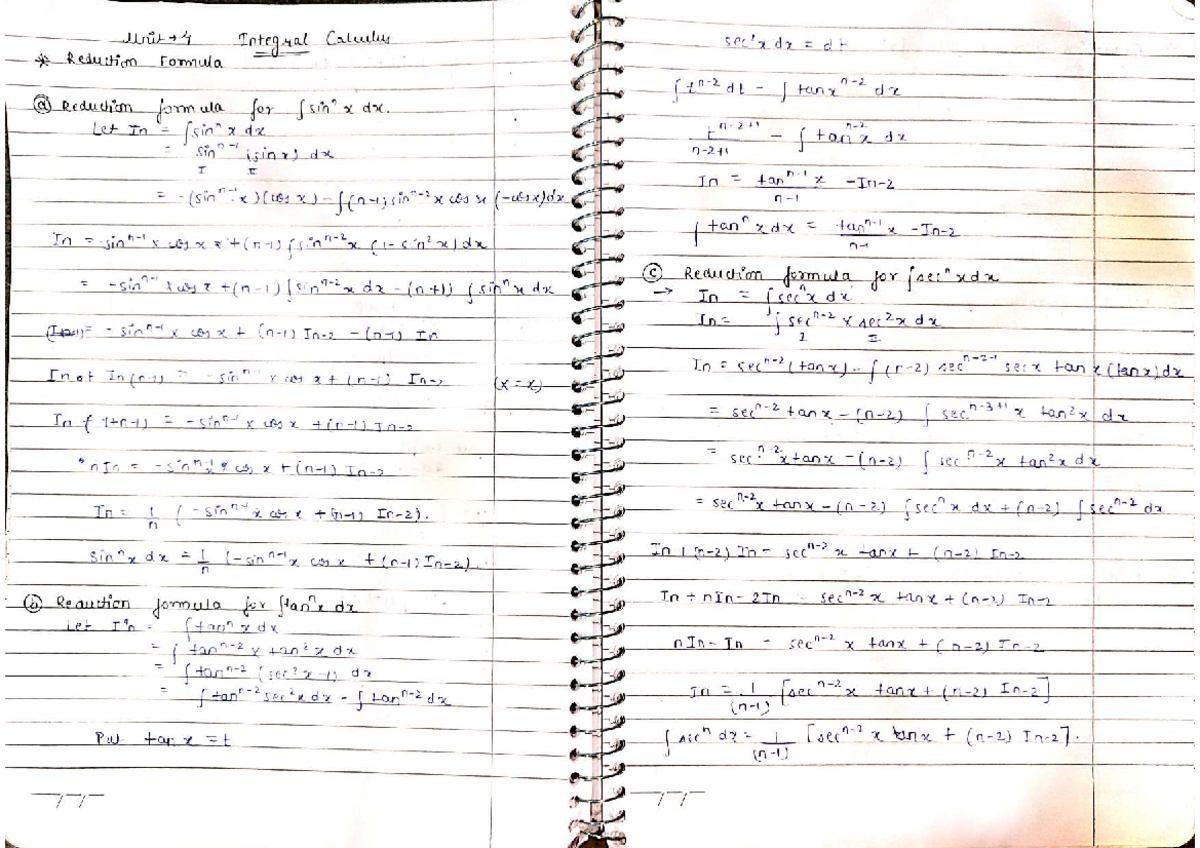 Unit → 4 Integral Calculus
* Reduction Formula
ⓐ Reduction formula for ∫sinⁿ x dx.
Let In = ∫sinⁿ x dx
= sinⁿ⁻¹ (sin x) dx
I II
= -(sinⁿ⁻¹x)(cos x) - ∫(n-1) sinⁿ⁻²x cos x (-cosx)dx
In = -sinⁿ⁻¹ x cos x + (n-1) ∫sinⁿ⁻²x (1-sin²x) dx
= -sinⁿ⁻¹ x cos x + (n-1) ∫sinⁿ⁻²x dx - (n+1) ∫sinⁿx dx
= -sinⁿ⁻¹ x cos x + (n-1) In-2 - (n-1) In
In (n-1) = -sinⁿ⁻¹ x cos x + (n-1) In-2
In (1+n-1) = -sinⁿ⁻¹ x cos x + (n-1) In-2
nIn = -sinⁿ⁻¹ x cos x + (n-1) In-2
In = 1/n (-sinⁿ⁻¹ x cos x + (n-1) In-2).
sinⁿ x dx = 1/n (-sinⁿ⁻¹ x cos x + (n-1) In-2).
ⓑ Reduction formula for ∫tanⁿx dx
Let In = ∫tanⁿ x dx
= ∫tanⁿ⁻² x tan² x dx
= ∫tanⁿ⁻² (sec² x -1) dx
= ∫tanⁿ⁻² sec²x dx - ∫tanⁿ⁻² dx
Put tan x = t
sec²x dx = dt
∫tⁿ⁻² dt - ∫tanxⁿ⁻² dx
tⁿ⁻²⁺¹/n-2+1 - ∫tanⁿ⁻²x dx
In = tanⁿ⁻¹x/n-1 - In-2
∫tanⁿ x dx = tanⁿ⁻¹x/n-1 - In-2
ⓒ Reduction formula for ∫secⁿ x dx
→ In = ∫secⁿx dx
In = ∫secⁿ⁻² x sec²x dx
I II
In = secⁿ⁻² (tanx) - ∫(n-2) secⁿ⁻²⁻¹ secx tanx (tanx) dx
= secⁿ⁻² tanx - (n-2) ∫secⁿ⁻³⁺¹ x tan²x dx
= secⁿ⁻²x tanx - (n-2) ∫secⁿ⁻²x tan²x dx
= secⁿ⁻²x tanx - (n-2) ∫secⁿx dx + (n-2) ∫secⁿ⁻² dx
In + (n-2) In = secⁿ⁻² x tanx + (n-2) In-2
In + nIn - 2In = secⁿ⁻² x tanx + (n-2) In-2
nIn - In = secⁿ⁻² x tanx + (n-2) In-2
In = 1/(n-1) [secⁿ⁻² x tanx + (n-2) In-2]
∫secⁿ dx = 1/(n-1) [secⁿ⁻² x tanx + (n-2) In-2].